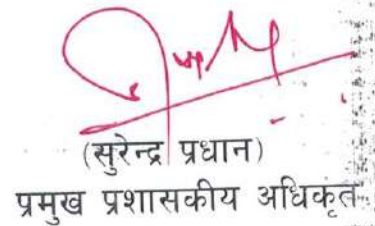 (सुरेन्द्र प्रधान)
प्रमुख प्रशासकीय अधिकृत